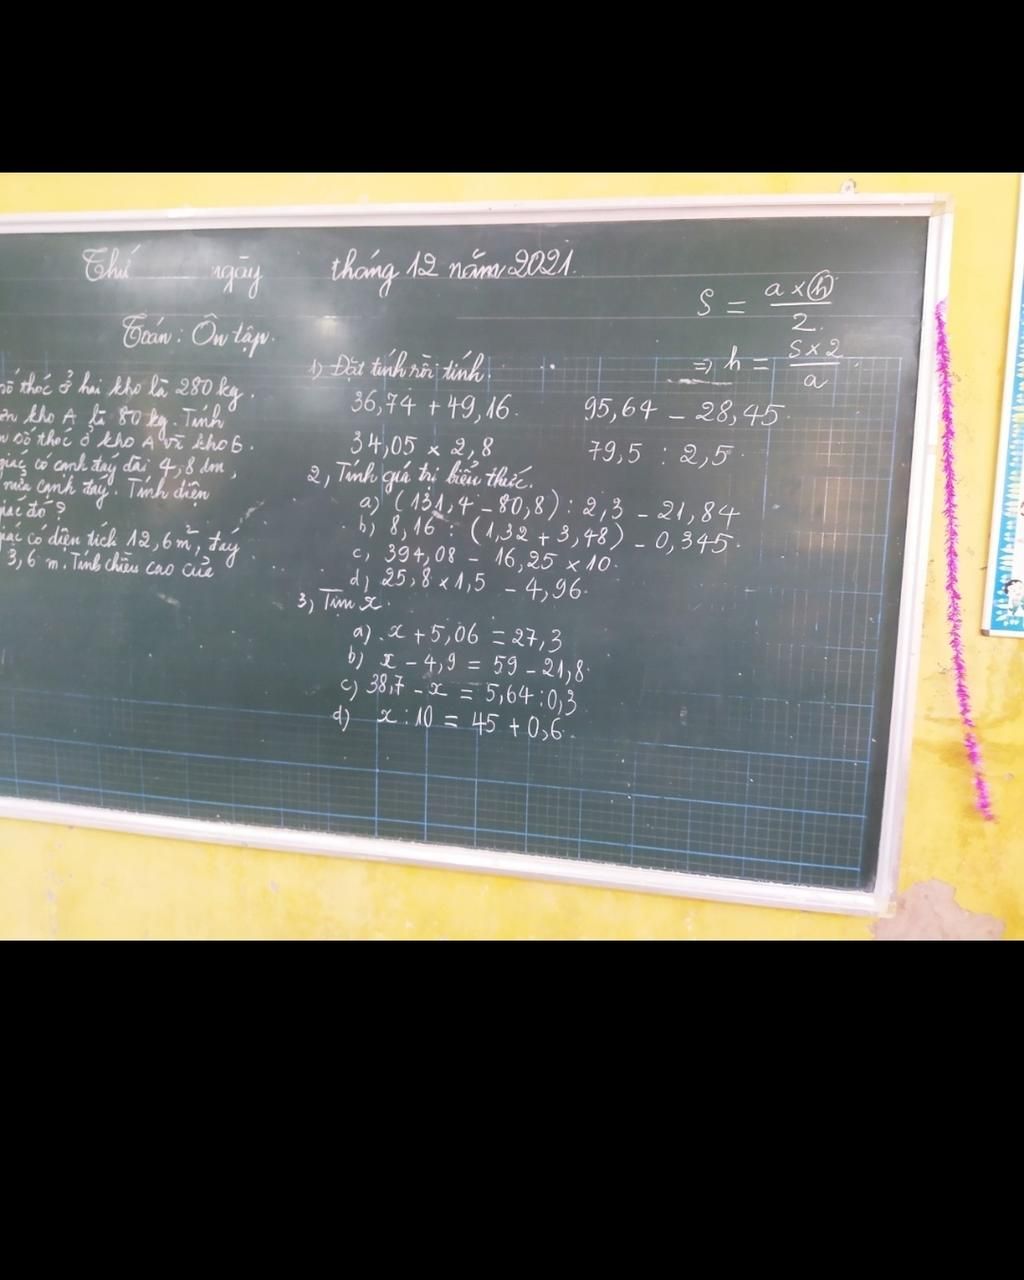 Thứ ngày tháng 12 năm 2021.
Toán: Ôn tập.
S = a × h / 2.
=> h = S × 2 / a
số thóc ở hai kho là 280 kg.
kho A là 80 kg. Tính
số thóc ở kho A và kho B.
giác có cạnh đáy dài 4,8 dm,
nửa cạnh đáy. Tính diện
giác đó?
giác có diện tích 12,6 m², đáy
3,6 m. Tính chiều cao của
1) Đặt tính rồi tính.
36,74 + 49,16. 95,64 - 28,45.
34,05 × 2,8 79,5 : 2,5
2, Tính giá trị biểu thức.
a) (131,4 - 80,8) : 2,3 - 21,84
b) 8,16 : (1,32 + 3,48) - 0,345.
c, 394,08 - 16,25 × 10.
d, 25,8 × 1,5 - 4,96.
3, Tìm x.
a) x + 5,06 = 27,3
b) x - 4,9 = 59 - 21,8.
c) 38,7 - x = 5,64 : 0,3
d) x : 10 = 45 + 0,6.